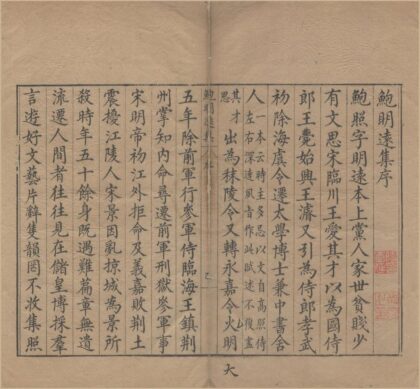 鮑明遠集序
鮑照字明遠本上黨人家世貧賤少
有文思宋臨川王愛其才以為國侍
郎王薨始興王濬又引為侍郎孝武
初除海虞令遷太學博士兼中書舍
人一本云時主多忌以文自高照侍左右深達風旨作此賦述不復盡
其才思出為秣陵令又轉永嘉令火明
大
鮑明遠集
五年除前軍行參軍侍臨海王鎮荆
州掌知內命尋遷前軍刑獄參軍事
宋明帝初江外拒命及義嘉敗荆土
震擾江陵人宋景因亂掠城為景所
殺時年五十餘身既遇難篇章無遺
流遷人間者往往見在儲皇博採羣
言遊好文藝片辭隻韻罔不收集照